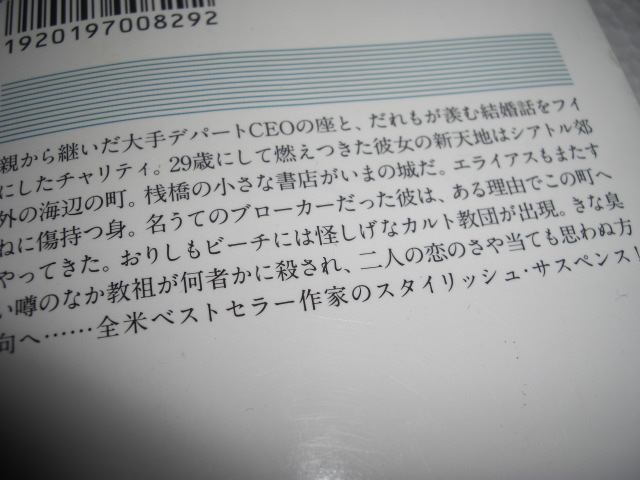 1920197008292
親から継いだ大手デパートCEOの座と、だれもが羨む結婚話をフイ
にしたチャリティ。29歳にして燃えつきた彼女の新天地はシアトル郊
外の海辺の町。桟橋の小さな書店がいまの城だ。エライアスもまたす
ねに傷持つ身。名うてのブローカーだった彼は、ある理由でこの町へ
やってきた。おりしもビーチには怪しげなカルト教団が出現。きな臭
い噂のなか教祖が何者かに殺され、二人の恋のさや当ても思わぬ方
向へ……全米ベストセラー作家のスタイリッシュ・サスペンス!